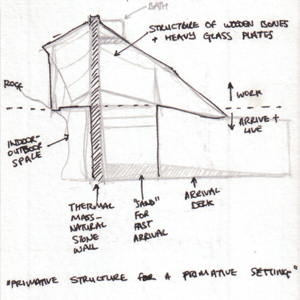 BATH
STRUCTURE OF WOODEN BONES
+ HEAVY GLASS PLATES
ROCK
WORK
ARRIVE +
LIVE
INDOOR-
OUTDOOR
SPACE
THERMAL
MASS-
NATURAL
STONE
WALL
"SAND"
FOR
FAST
ARRIVAL
ARRIVAL
DECK
"PRIMATIVE STRUCTURE FOR A PRIMATIVE SETTING"